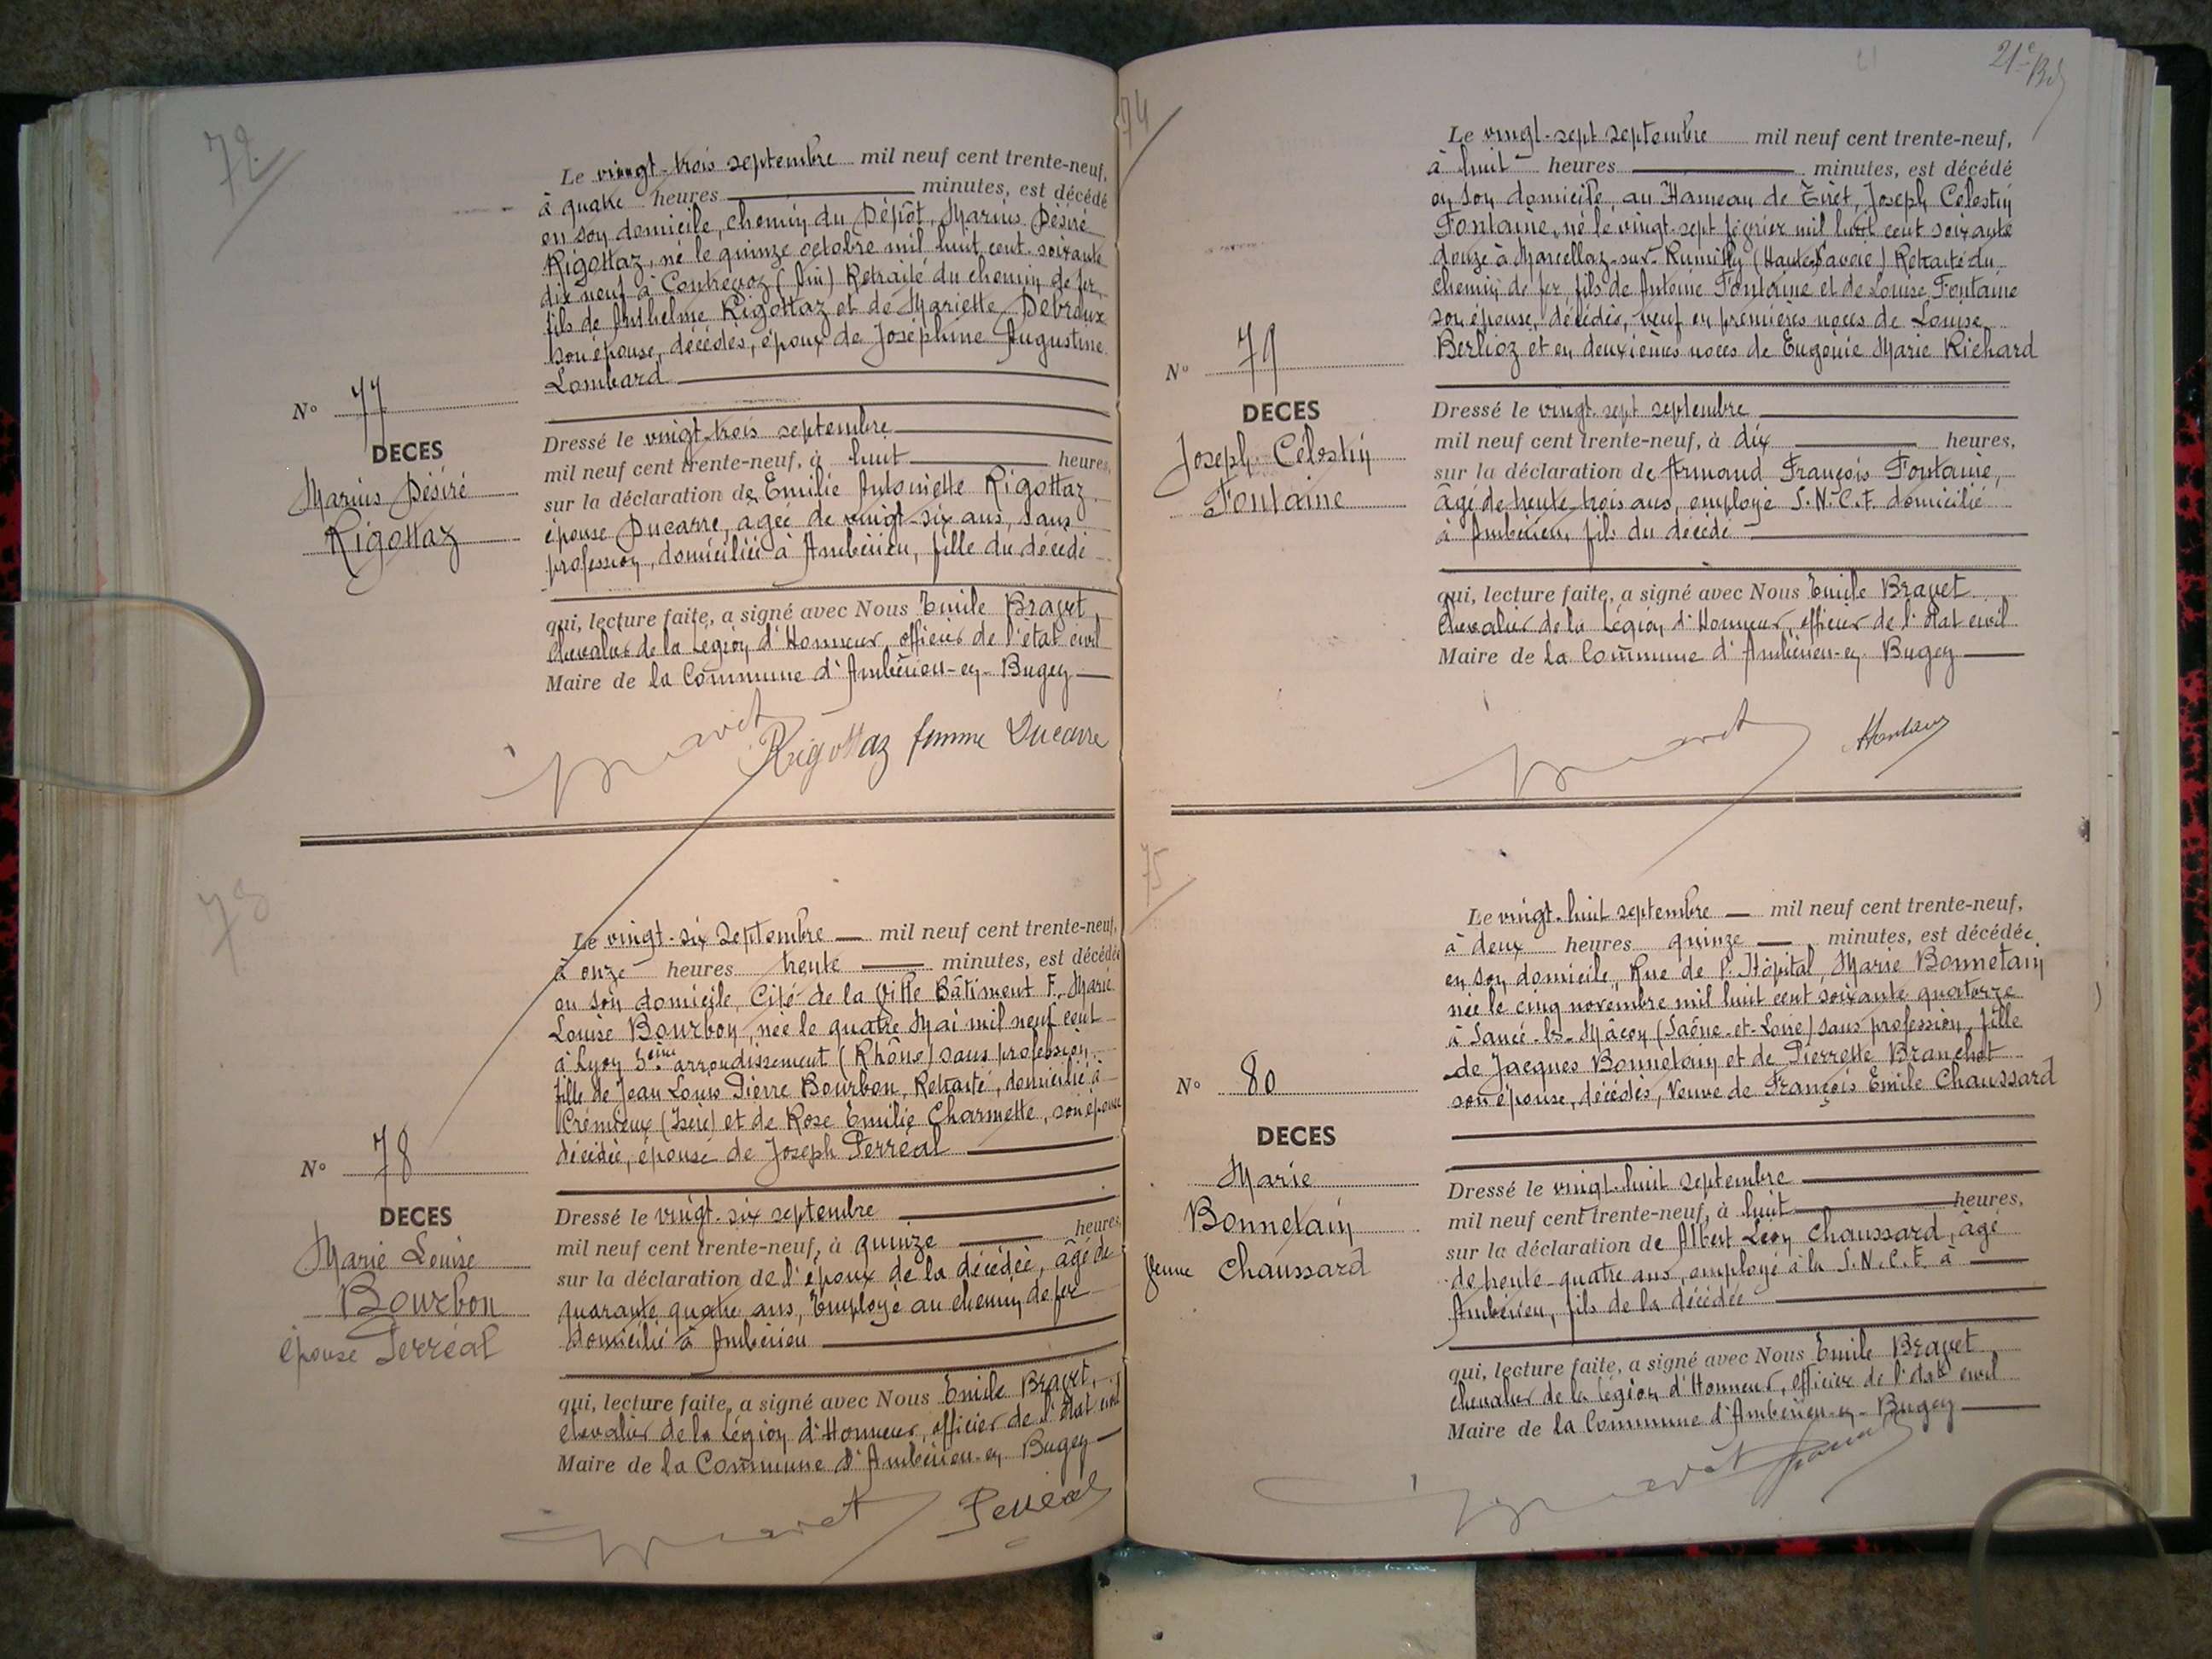 72
Le vingt-trois septembre mil neuf cent trente-neuf,
à quatre heures minutes, est décédé
en son domicile, chemin du Dépôt, Marius Désiré
Rigottaz, né le quinze octobre mil huit cent soixante
dix neuf à Contrevoz (Ain) Retraité du chemin de fer,
fils de Anthelme Rigottaz et de Mariette Debraux
son épouse, décédés, époux de Joséphine Augustine
Lombard
N° 77
DECES
Marius Désiré
Rigottaz
Dressé le vingt-trois septembre
mil neuf cent trente-neuf, à huit heures,
sur la déclaration de Emilie Antoinette Rigottaz
épouse Ducarre, âgée de vingt-six ans, sans
profession, domiciliée à Ambérieu, fille du décédé
qui, lecture faite, a signé avec Nous Emile Bravet
chevalier de la Légion d'Honneur, officier de l'état civil
Maire de la Commune d'Ambérieu-en-Bugey
Bravet
Rigottaz femme Ducarre
73
Le vingt-six septembre mil neuf cent trente-neuf,
à onze heures trente minutes, est décédée
en son domicile, Cité de la Ville Bâtiment F. Marie
Louise Bourbon, née le quatre Mai mil neuf cent
à Lyon 3ème arrondissement (Rhône) sans profession,
fille de Jean Louis Pierre Bourbon, Retraité, domicilié à
Crémieux (Isère) et de Rose Emilie Charmette, son épouse
décédée, épouse de Joseph Perréal
N° 78
DECES
Marie Louise
Bourbon
épouse Perréal
Dressé le vingt-six septembre
mil neuf cent trente-neuf, à quinze heures,
sur la déclaration de l'époux de la décédée, âgé de
quarante quatre ans, Employé au chemin de fer
domicilié à Ambérieu
qui, lecture faite, a signé avec Nous Emile Bravet,
chevalier de la Légion d'Honneur, officier de l'état civil
Maire de la Commune d'Ambérieu-en-Bugey
Bravet
Perréal
21e
74
Le vingt-sept septembre mil neuf cent trente-neuf,
à huit heures minutes, est décédé
en son domicile, au Hameau de Tiret, Joseph Célestin
Fontaine, né le vingt-sept février mil huit cent soixante
douze à Marcellaz-sur-Rumilly (Haute Savoie) Retraité du
chemin de fer, fils de Antoine Fontaine et de Louise Fontaine
son épouse, décédés, veuf en premières noces de Louise
Berlioz et en deuxièmes noces de Eugénie Marie Richard
N° 79
DECES
Joseph Célestin
Fontaine
Dressé le vingt-sept septembre
mil neuf cent trente-neuf, à dix heures,
sur la déclaration de Armand François Fontaine,
âgé de trente trois ans, employé S.N.C.F. domicilié
à Ambérieu, fils du décédé
qui, lecture faite, a signé avec Nous Emile Bravet
Chevalier de la Légion d'Honneur, officier de l'état civil
Maire de la Commune d'Ambérieu-en-Bugey
Bravet
75
Le vingt-huit septembre mil neuf cent trente-neuf,
à deux heures quinze minutes, est décédée
en son domicile, Rue de l'Hôpital, Marie Bonnetain
née le cinq novembre mil huit cent soixante quatorze
à Sancé-les-Mâcon (Saône-et-Loire) sans profession, fille
de Jacques Bonnetain et de Pierrette Branchet
son épouse, décédés, Veuve de François Emile Chaussard
N° 80
DECES
Marie
Bonnetain
Veuve Chaussard
Dressé le vingt-huit septembre
mil neuf cent trente-neuf, à huit heures,
sur la déclaration de Albert Léon Chaussard, âgé
de trente-quatre ans, employé à la S.N.C.F. à
Ambérieu, fils de la décédée
qui, lecture faite, a signé avec Nous Emile Bravet
chevalier de la Légion d'Honneur, officier de l'état civil
Maire de la Commune d'Ambérieu-en-Bugey
Bravet